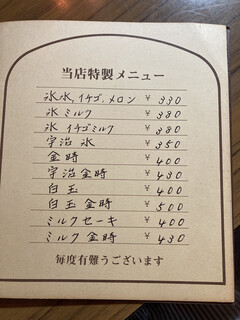 当店特製メニュー
氷水,イチゴ,メロン ¥330
氷ミルク ¥380
氷 イチゴミルク ¥380
宇治 氷 ¥350
金時 ¥400
宇治金時 ¥430
白玉 ¥400
白玉金時 ¥500
ミルクセーキ ¥400
ミルク金時 ¥430
毎度有難うございます